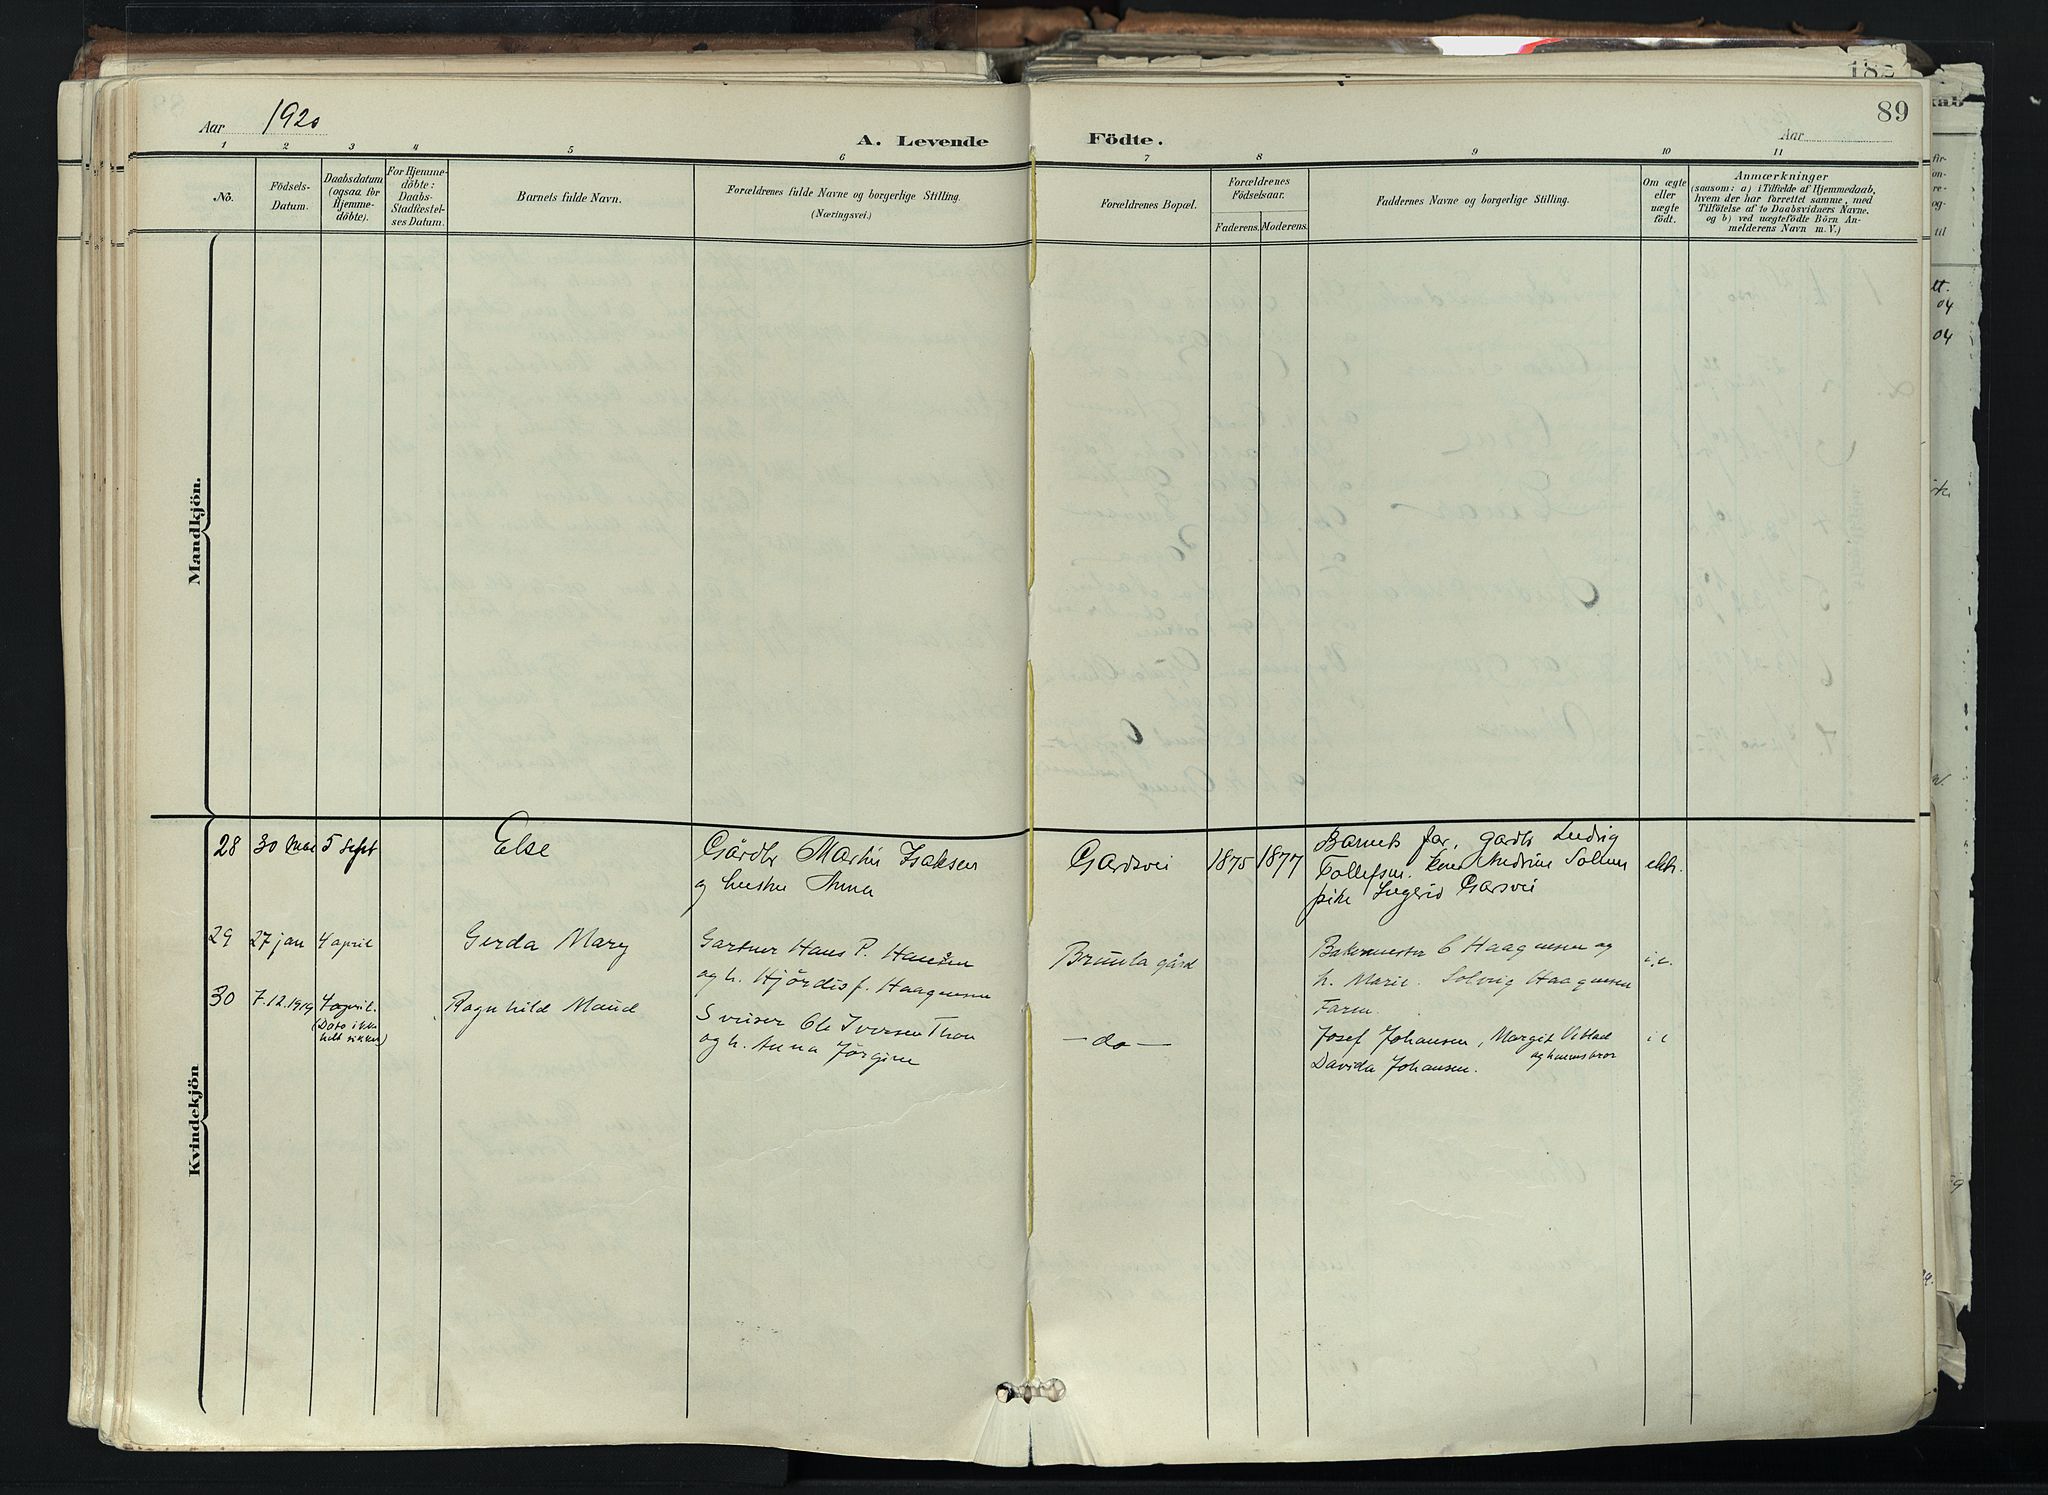 182
89
Aar 1920
A. Levende Födte.
Aar
1 2 3 4 5 6 7 8 9 10 11
No.
Födsels-
Datum.
Daabsdatum
(ogsaa for
Hjemme-
döbte).
For Hjemme-
döbte:
Daabs-
Stadfæstel-
ses Datum.
Barnets fulde Navn.
Forældrenes fulde Navne og borgerlige Stilling.
(Næringsvei.)
Forældrenes Bopæl.
Forældrenes
Födselsaar.
Faderens. Moderens.
Faddernes Navne og borgerlige Stilling.
Om ægte
eller
uægte
födt.
Anmærkninger
(saasom: a) i Tilfælde af Hjemmedaab,
hvem der har forrettet samme, med
Tilföielse af to Daabsvidners Navne.
og b) ved uægtefödte Börn An-
melderens Navn m. V.)
Mandkjön.
Kvindekjön
28 30 mai 5 sept Else
Gårdbr Martin Isaksen
og hustru Anna
Gardsvei 1875 1877
Barnets far, gardbr Ludvig
Tollefsen. kone Andrine Solum
pike Ingerid Garsvei
ekte.
29 27 jan 4 april Gerda Mary
Gartner Hans P. Hansen
og h. Hjördis f. Haagensen
Brunla gård
Bakermester C Haagensen og
h. Marie. Solveig Haagensen
Farm.
30 7.12.1919 4 april.
(Dato ikke
helt sikker)
Ragnhild Maud
Sveiser Ole Iversen Thon
og h. Anna Jörgine
— do —
Josef Johansen, Margit Vistad
og hennes bror
Davida Johansen.